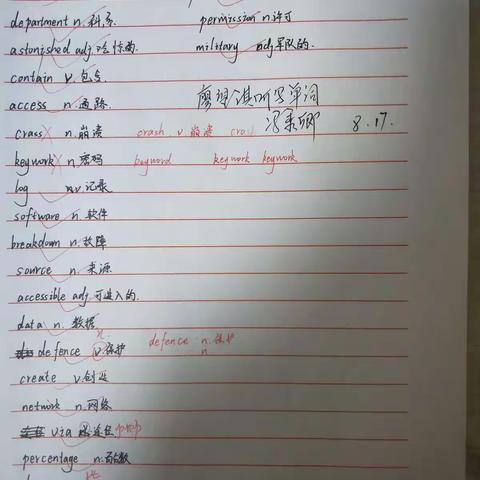 department n. 科, 系
permission n. 许可
astonished adj. 吃惊的.
military adj 军队的.
contain v. 包含
access n. 通路.
听写单词
8.17.
crass n. 崩溃 crash v. 崩溃
keywork n. 密码 keyword keywork keywork
log n v. 记录
software n. 软件
breakdown n. 故障
source n. 来源
accessible adj. 可进入的.
data n. 数据
n
defence v. 保护 defence n. 保护
n
create v. 创造
network n. 网络
via 途径 prep
percentage n. 百分数